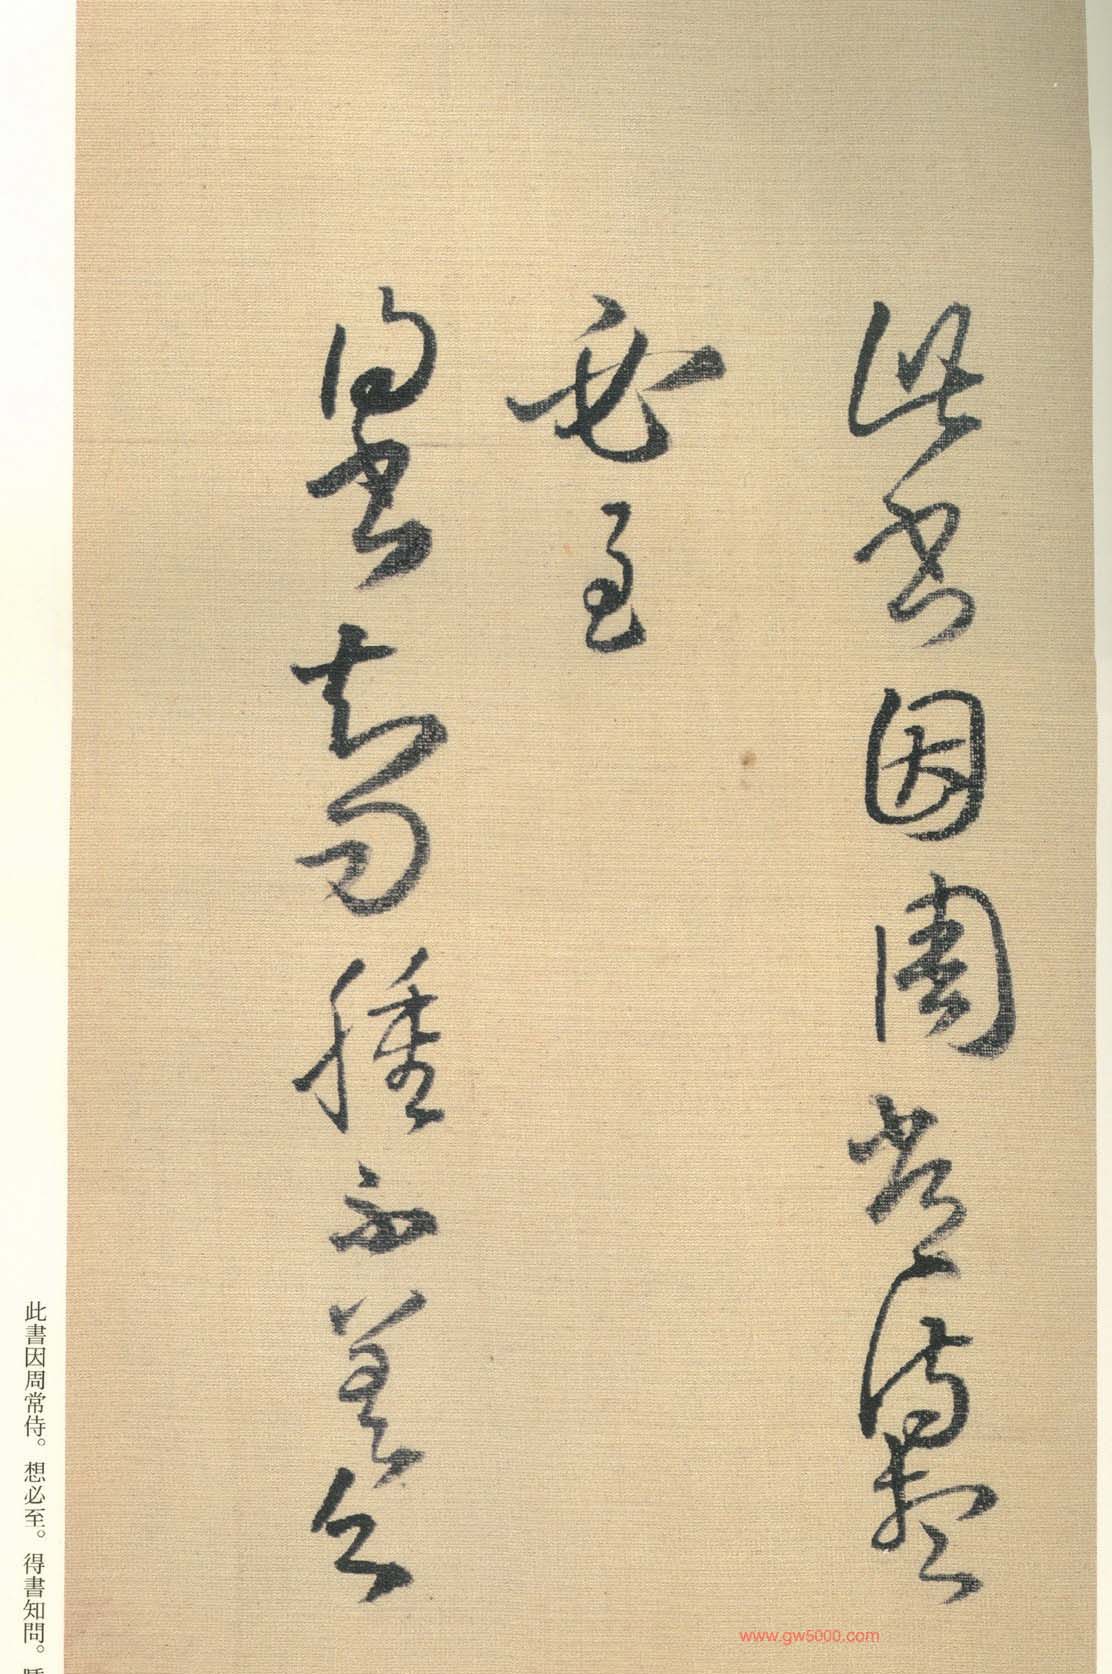 此書因周常侍想
必至
得書知問腫不差公
此書因周常侍。想必至。得書知問。腫
www.gw5000.com